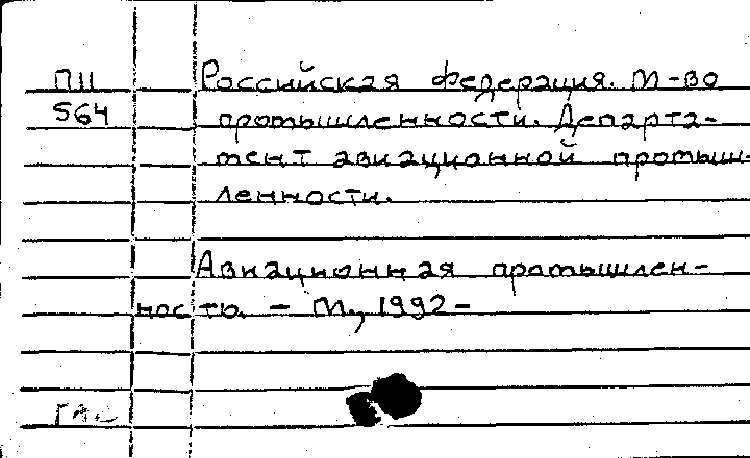 П11 Российская Федерация. М-во
564 промышленности. Департа-
мент авиационной промыш-
ленности.
Авиационная промышлен-
ность. – М., 1992–
ГАС